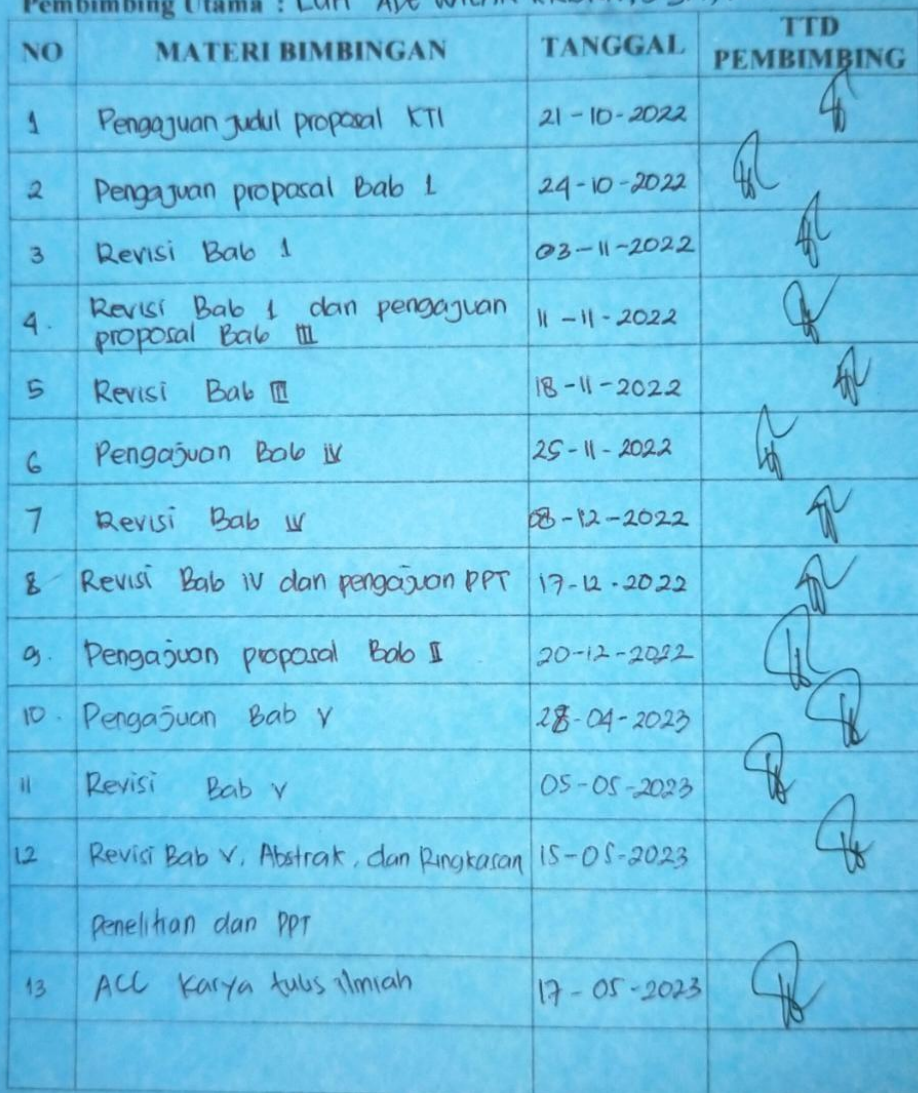 Pembimbing Utama :
NO MATERI BIMBINGAN TANGGAL TTD PEMBIMBING
1 Pengajuan judul proposal KTI 21-10-2022
2 Pengajuan proposal Bab 1 24-10-2022
3 Revisi Bab 1 03-11-2022
4. Revisi Bab 1 dan pengajuan 11-11-2022
proposal Bab III
5 Revisi Bab III 18-11-2022
6 Pengajuan Bab IV 25-11-2022
7 Revisi Bab IV 08-12-2022
8 Revisi Bab IV dan pengajuan PPT 17-12-2022
9. Pengajuan proposal Bab II 20-12-2022
10. Pengajuan Bab V 28-04-2023
11 Revisi Bab V 05-05-2023
12 Revisi Bab V, Abstrak, dan Ringkasan 15-05-2023
Penelitian dan PPT
13 ACC Karya tulis ilmiah 17-05-2023